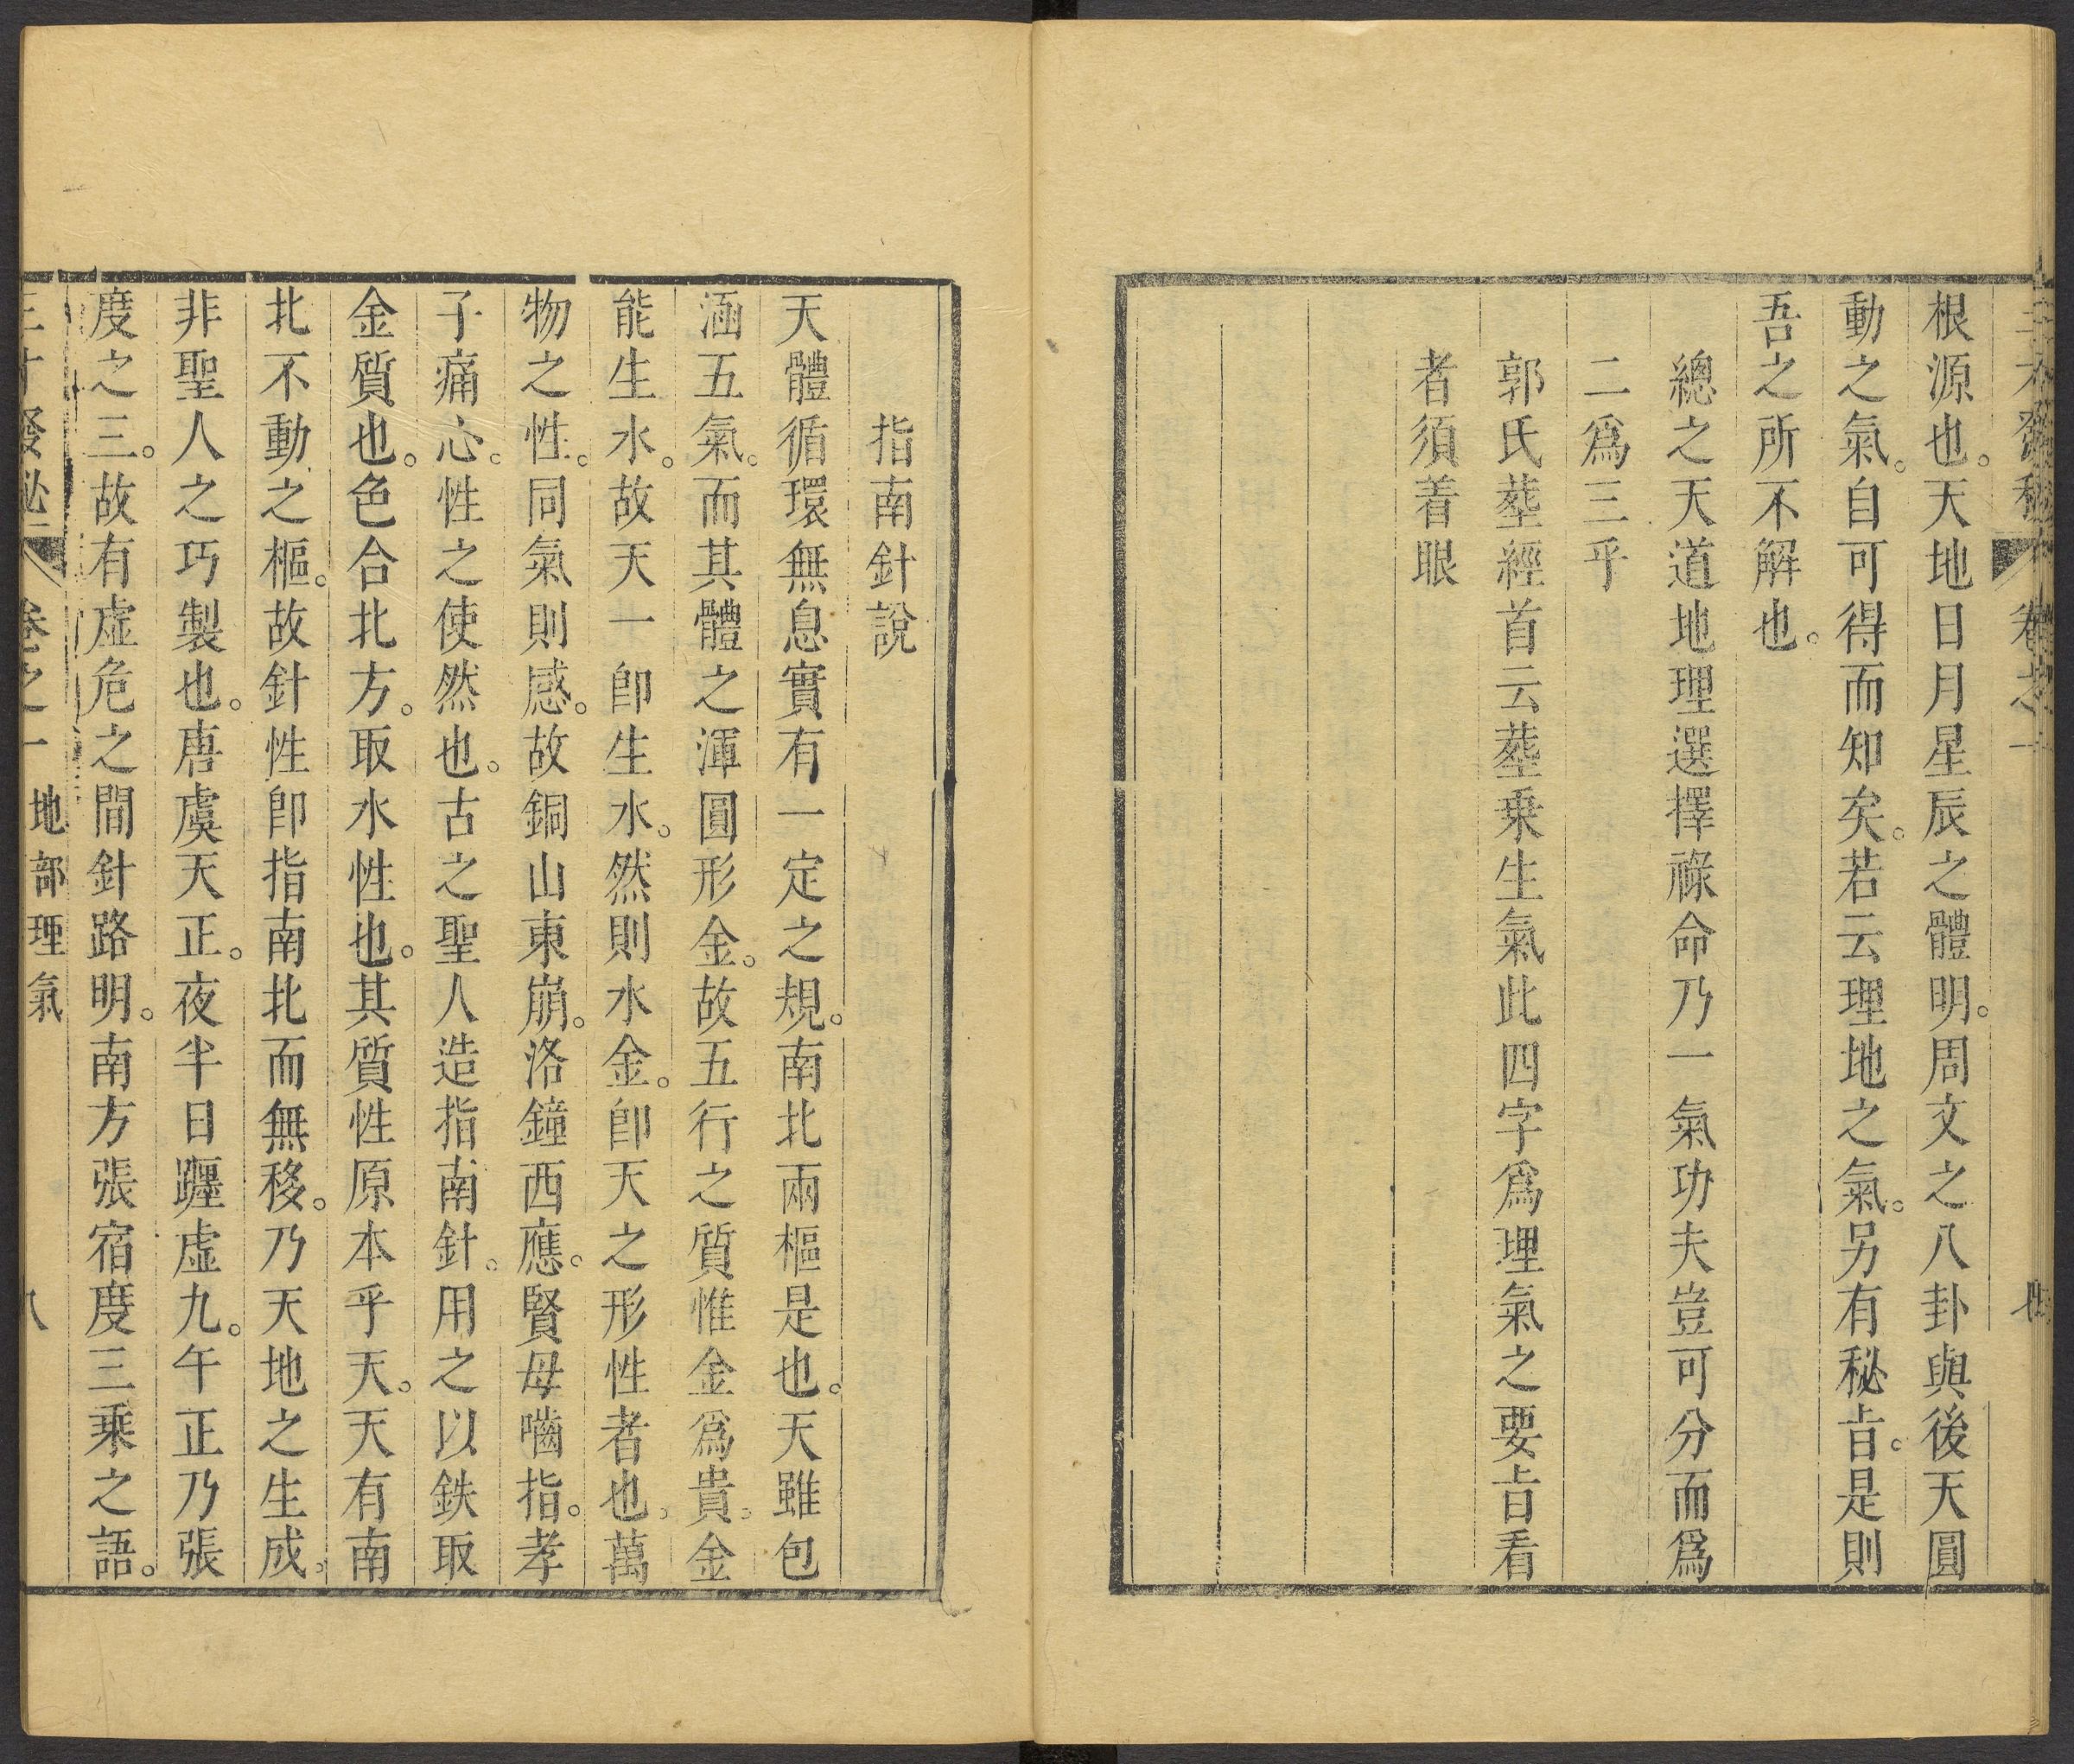 根源也。天地日月星辰之體明。周文之八卦與後天圓
動之氣。自可得而知矣。若云理地之氣。另有秘㫖。是則
吾之所不解也。
總之天道地理選擇祿命乃一氣功夫豈可分而爲
二爲三乎
郭氏塟經首云塟乗生氣此四字爲理氣之要㫖看
者須着眼
指南針說
天體循環無息實有一定之規。南北兩樞是也。天雖包
涵五氣。而其體之渾圓形金。故五行之質惟金爲貴。金
能生水。故天一卽生水。然則水金。卽天之形性者也。萬
物之性。同氣則感。故銅山東崩。洛鐘西應。賢母嚙指。孝
子痛心。性之使然也。古之聖人造指南針。用之以鉄取
金質也。色合北方。取水性也。其質性原本乎天。天有南
北不動之樞。故針性卽指南北而無移。乃天地之生成。
非聖人之巧製也。唐虞天正。夜半日躔虛九。午正乃張
度之三。故有虛危之間針路明。南方張宿度三乘之語。
三才發秘 卷之一 地部理氣 八